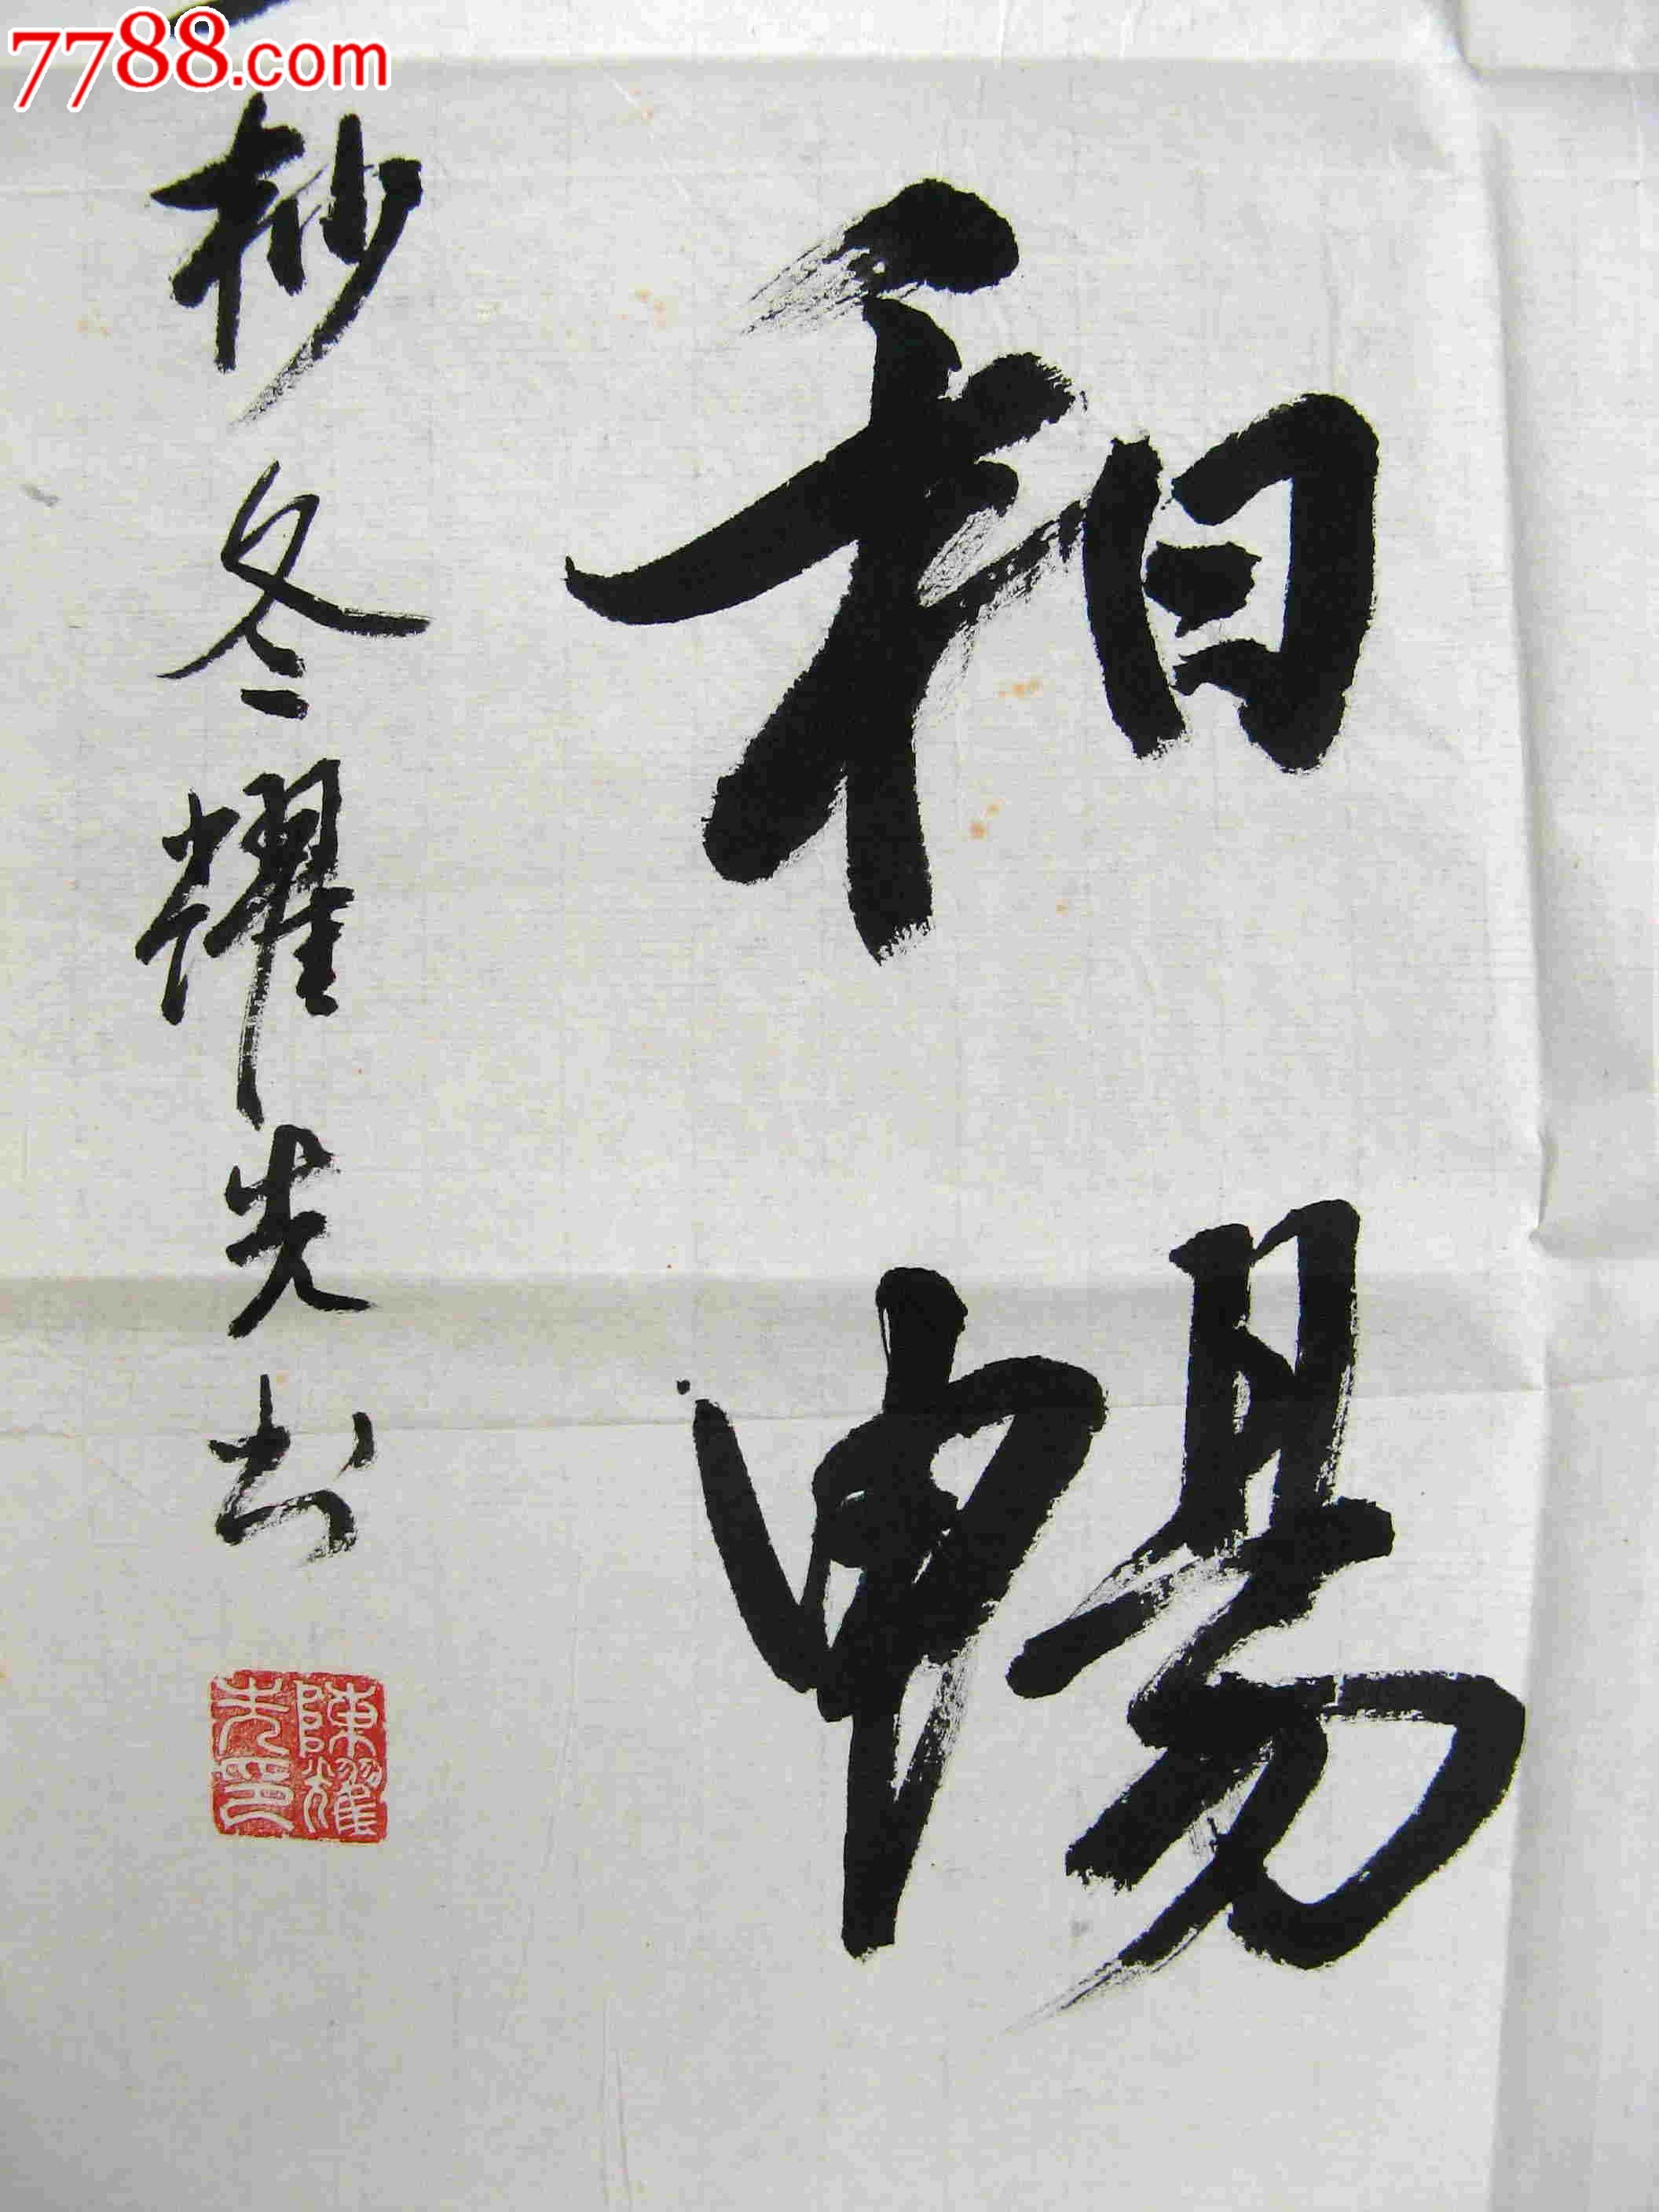 7788.com
和暢
杪冬耀先书
陳耀先印